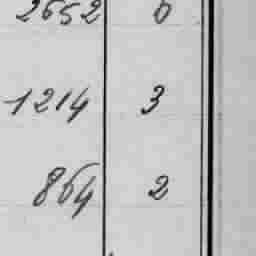 2652 0
1214 3
864 2